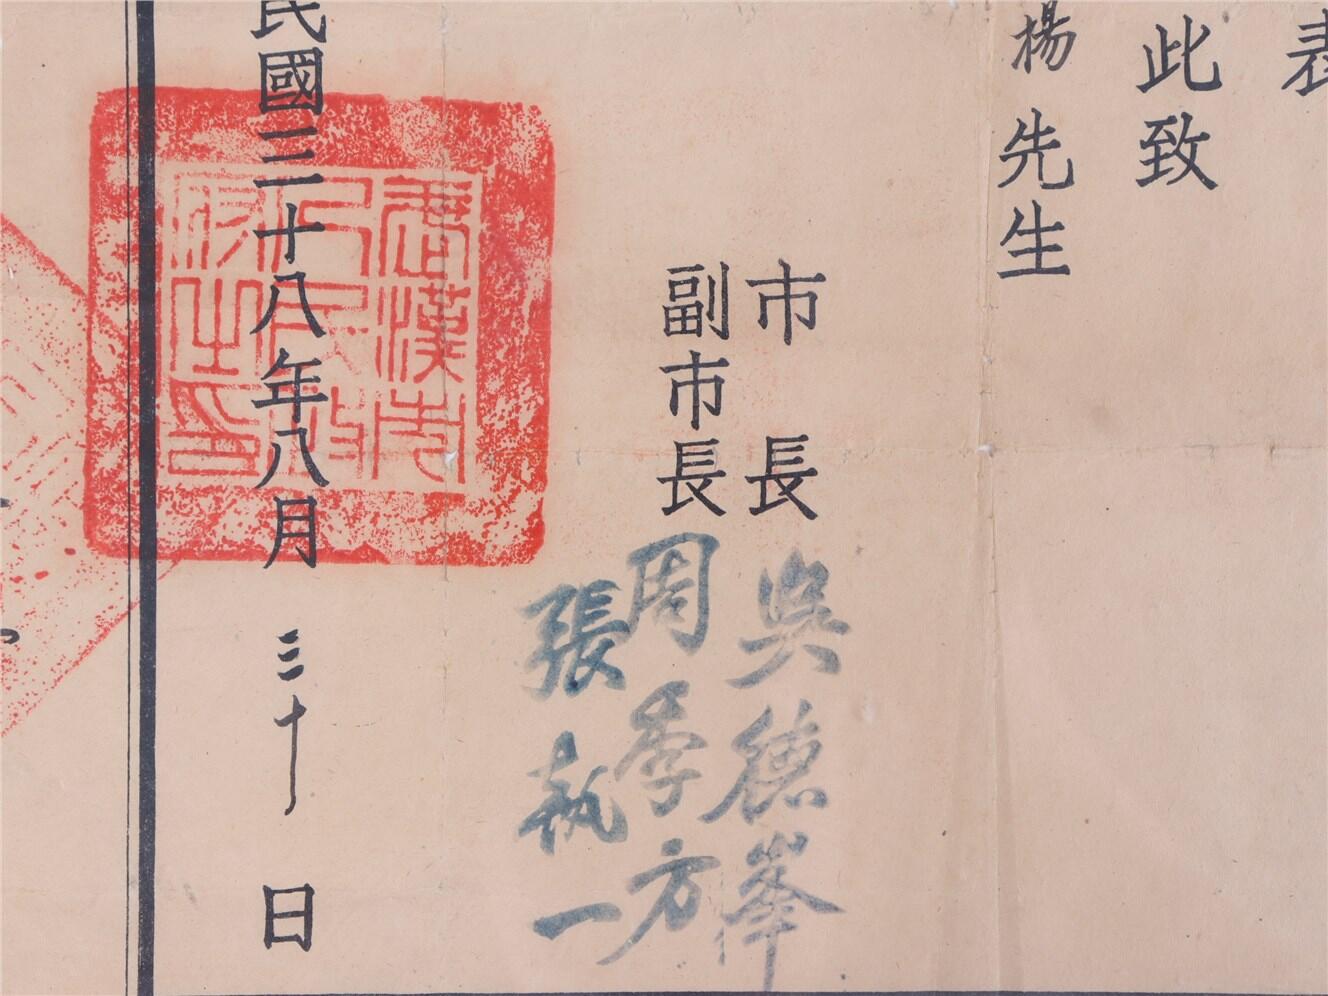 此致
楊先生
市長 吳德峯
副市長 周季方
張執一
民國三十八年八月三十日
武漢市
人民政
府之印